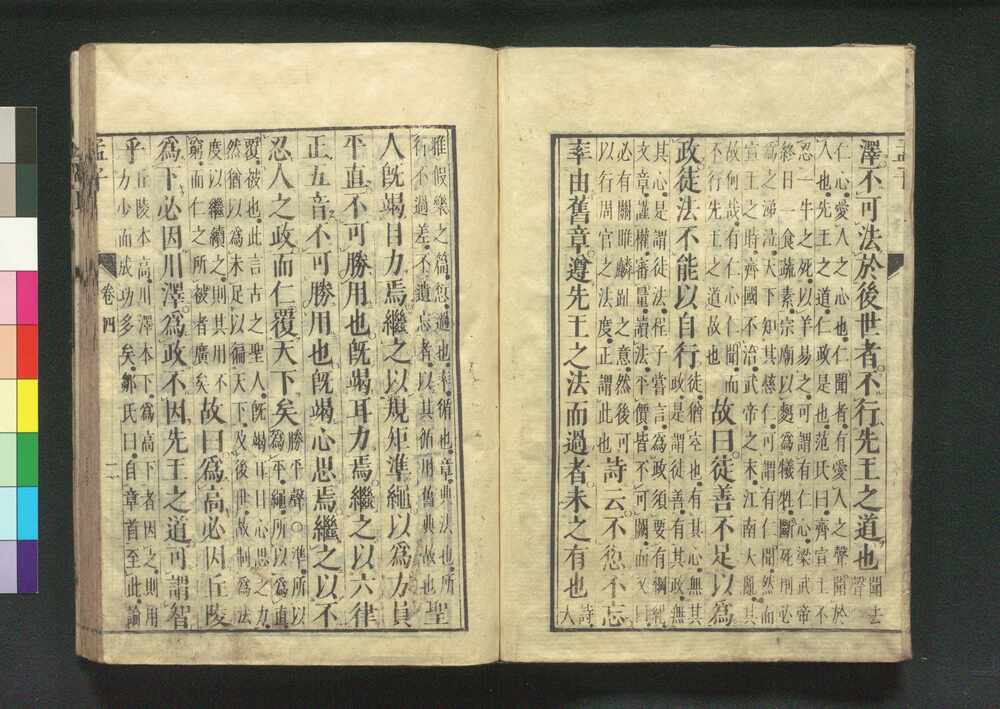 澤不可法於後世者不行先王之道也聞去聲
仁心愛人之心也仁聞者有愛人之聲聞於
人也先王之道仁政是也范氏曰齊宣王不
忍一牛之死以羊易之可謂有仁心梁武帝
終日一食蔬素宗廟以麪為犧牲斷死刑必
為之涕泣天下知其慈仁可謂有仁聞然而
宣王之時齊國不治武帝之末江南大亂其
故何哉有仁心仁聞而
不行先王之道故也
故曰徒善不足以為
政徒法不能以自行
徒猶空也有其心無其
政是謂徒善有其政無
其心是謂徒法程子嘗言為政須要有綱紀
文章謹權審量讀法平價皆不可闕而又曰
必有關雎麟趾之意然後可
以行周官之法度正謂此也
詩云不愆不忘
率由舊章遵先王之法而過者未之有也
詩大
雅假樂之篇愆過也率循也章典法也所
行不過差不遺忘者以其循用舊典故也
聖
人既竭目力焉繼之以規矩準繩以為方員
平直不可勝用也既竭耳力焉繼之以六律
正五音不可勝用也既竭心思焉繼之以不
忍人之政而仁覆天下矣
勝平聲○準所以
為平繩所以為直
覆被也此言古之聖人既竭耳目心思之力
然猶以為未足以徧天下及後世故制為法
度以繼續之則其用不
窮而仁之所被者廣矣
故曰為高必因丘陵
為下必因川澤為政不因先王之道可謂智
乎
丘陵本高川澤本下為高下者因之則用
力少而成功多矣鄒氏曰自章首至此論
孟子
卷四
二